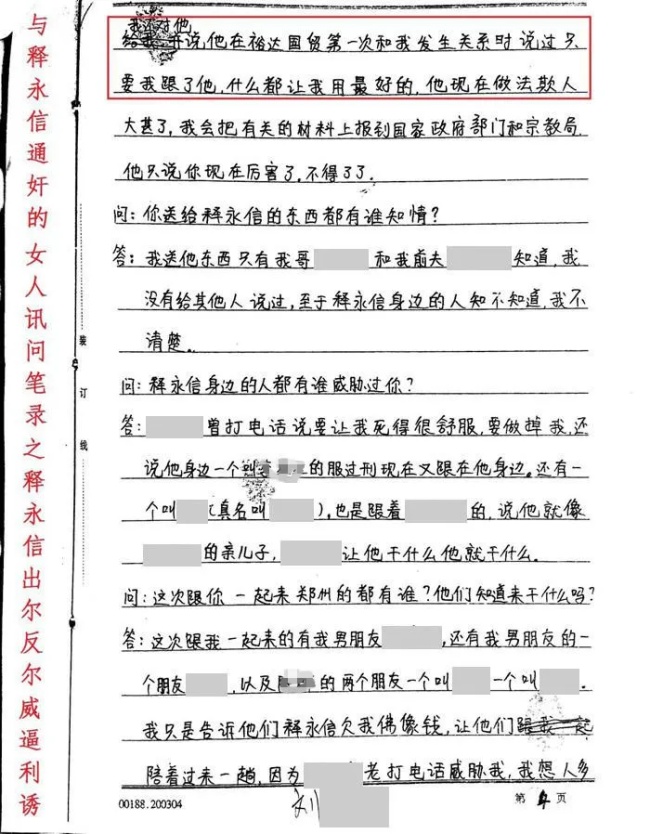 与释永信通奸的女人讯问笔录之释永信出尔反尔威逼利诱
我还对他
给我 并说他在裕达国贸第一次和我发生关系时说过只
要我跟了他,什么都让我用最好的,他现在做法欺人
太甚了,我会把有关的材料上报到国家政府部门和宗教局,
他只说你现在厉害了,不得了了.
问:你送给释永信的东西都有谁知情?
答:我送他东西只有我哥 和我前夫 知道,我
没有给其他人说过,至于释永信身边的人知不知道,我不
清楚。
装订线
问:释永信身边的人都有谁威胁过你?
答: 曾打电话说要让我死得很舒服,要做掉我,还
说他身边一个 的服过刑现在又跟在他身边。还有一
个叫 (真名叫 ),也是跟着 的,说他就像
的亲儿子, 让他干什么他就干什么。
问:这次跟你一起来郑州的都有谁?他们知道来干什么吗?
答:这次跟我一起来的有我男朋友 ,还有我男朋友的一
个朋友 ,以及 的两个朋友一个叫 一个叫 。
我只是告诉他们释永信欠我佛像钱,让他们跟我一起
陪着过来一趟,因为 老打电话威胁我,我想人多
00188.200304
刘
第 4 页